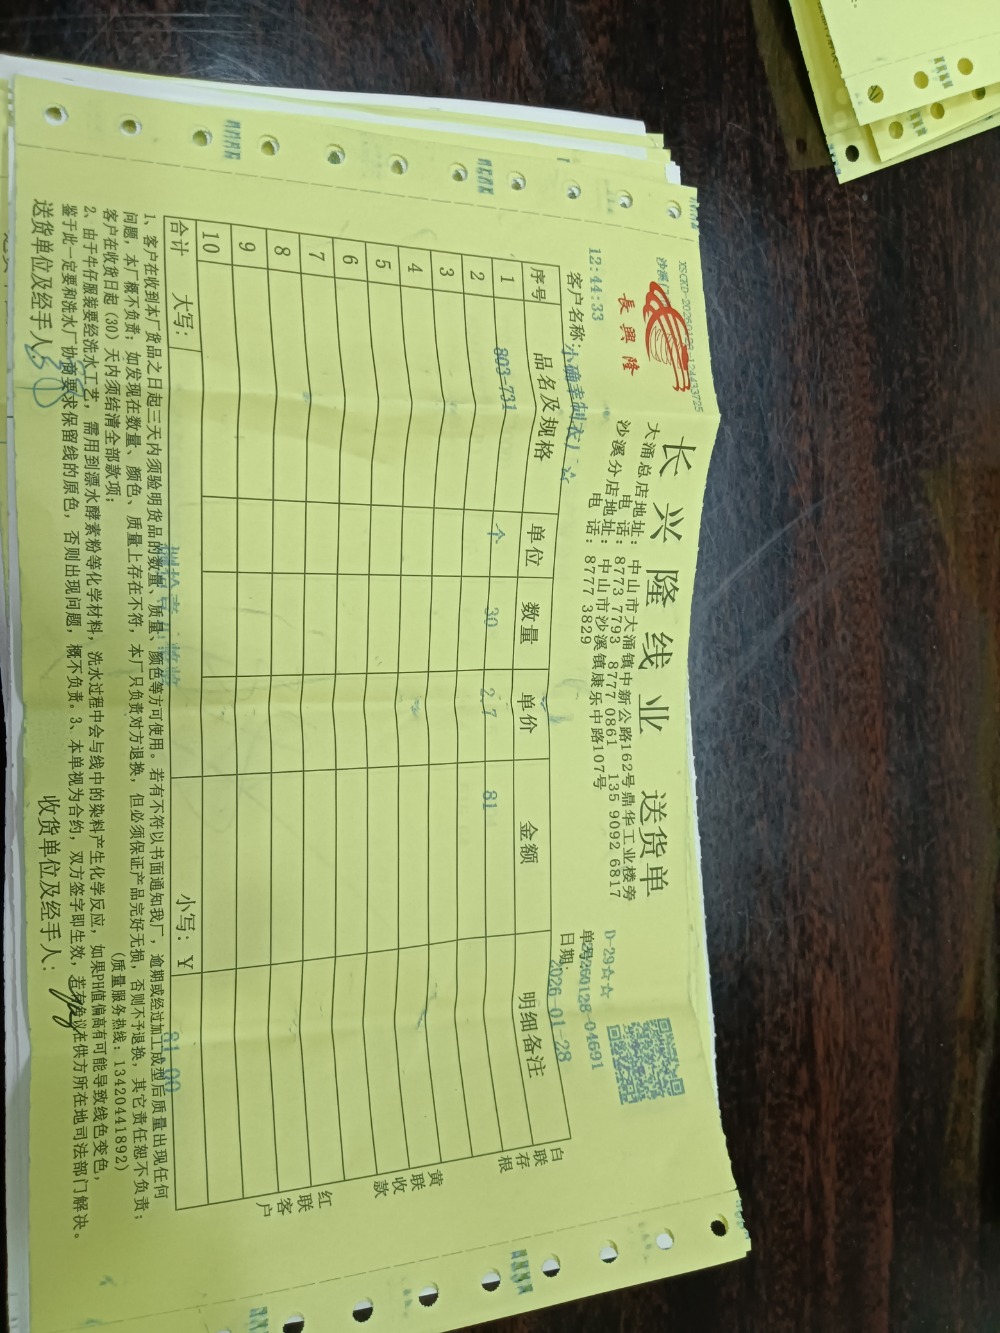 長興隆
长兴隆线业 送货单
大涌总店地址:中山市大涌镇中新公路162号鼎华工业楼旁
电 话:8773 7793 8777 0861 135 9092 6817
沙溪分店地址:中山市沙溪镇康乐中路107号
电 话:8777 3829
D-29☆☆
单号:20260128-04691
12:44:33
日期:2026-01-28
客户名称:小确幸制衣厂-☆
序号 品名及规格 单位 数量 单价 金额 明细备注
1 803-731 个 30 2.7 81
2
3
4
5
6
7
8
9
10
合计 大写: 小写:￥ 81.00
白联存根
黄联收款
红联客户
1、客户在收到本厂货品之日起三天内须验明货品的数量、质量、颜色等方可使用。若有不符以书面通知我厂,逾期或经过加工成型后质量出现任何
问题,本厂概不负责;如发现在数量、颜色、质量上存在不符,本厂只负责对方退换,但必须保证产品完好无损,否则不予退换,其它责任恕不负责;
客户在收货日起(30)天内须结清全部款项; (质量服务热线:13420441892)
2、由于牛仔服装要经洗水工艺,需用到漂水酵素粉等化学材料,洗水过程中会与线中的染料产生化学反应,如果PH值偏高有可能导致线色变色,
鉴于此一定要和洗水厂协商要求保留线的原色,否则出现问题,概不负责。3、本单视为合约,双方签字即生效,若有争议在供方所在地司法部门解决。
送货单位及经手人: 收货单位及经手人: